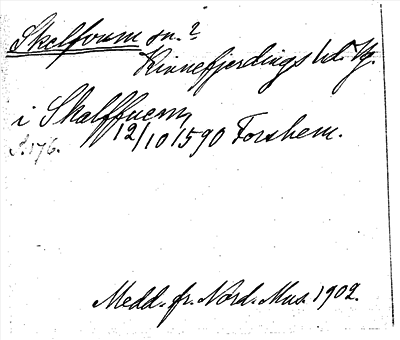 Skelfvum sn.?
Kinnefjerdings hd. Vg.
i Skalffuem
12/10 1590 Forshem.
S. 176.
Medd. fr. Nord. Mus. 1902.